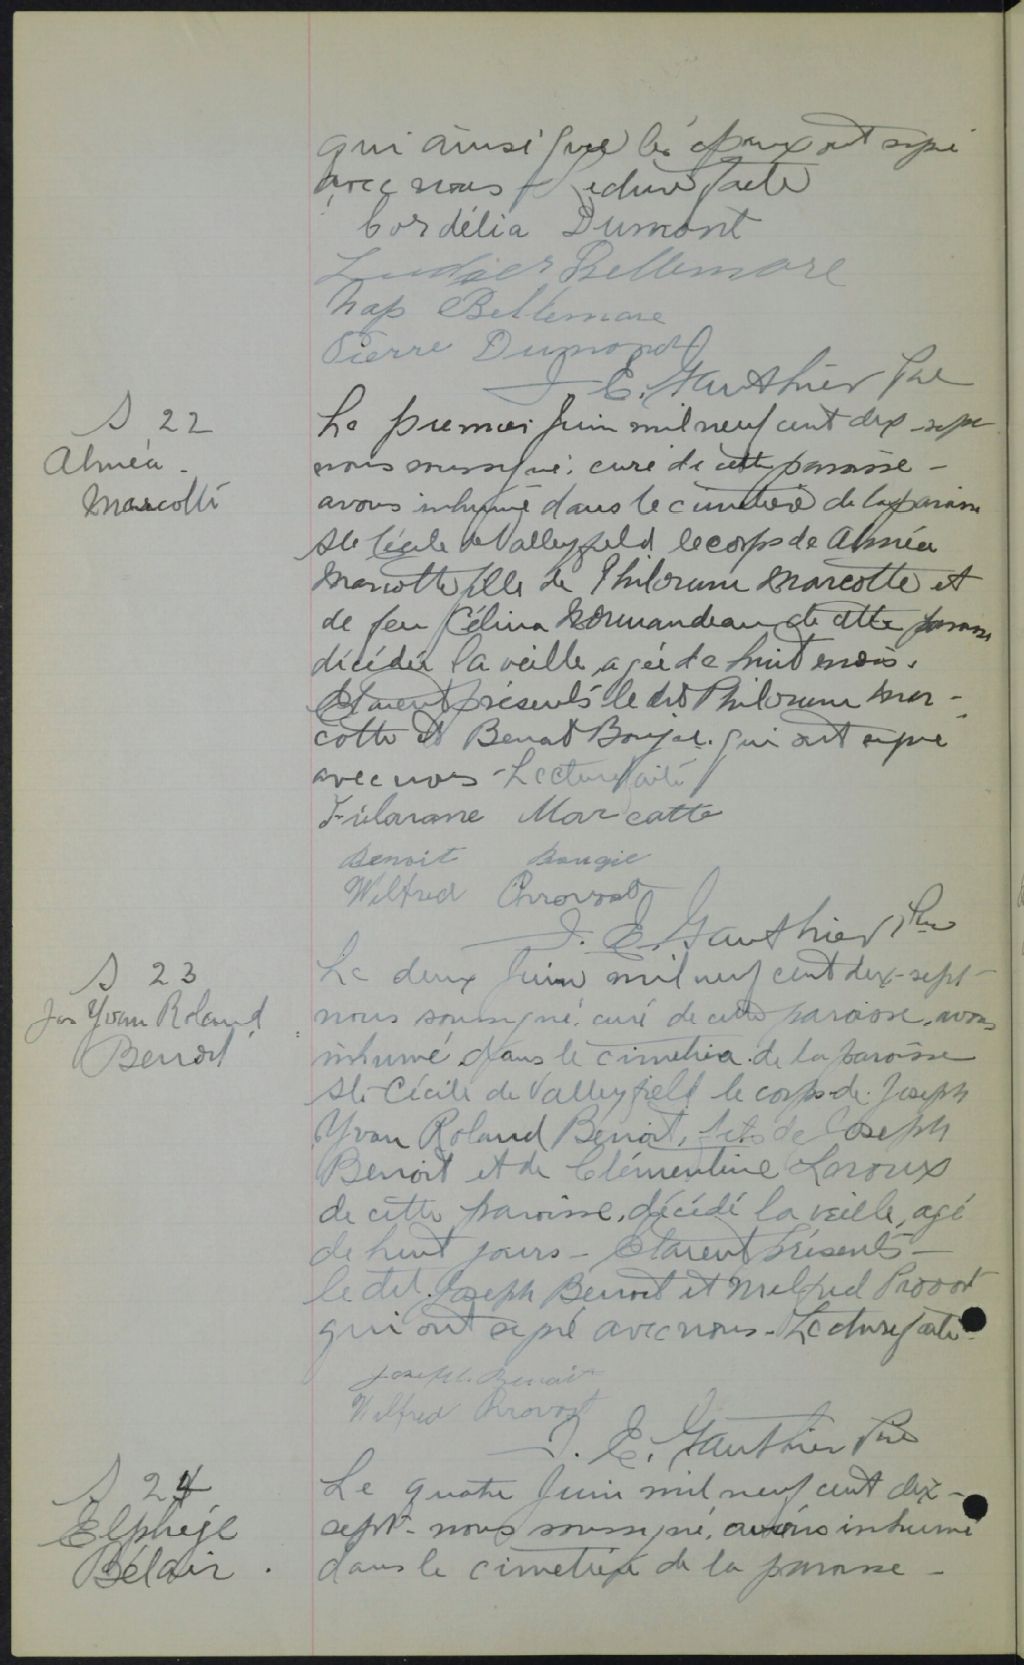 qui ainsi que les époux ont signé
avec nous. Lecture faite
Cordélia Dumont
Ludger Bellemare
Nap Bellemare
Pierre Dumont
J. E. Gauthier Ptre
S 22
Alméa
Marcotte
Le premier Juin mil neuf cent dix-sept
nous soussigné, curé de cette paroisse -
avons inhumé dans le cimetière de la paroisse
Ste Cécile de Valleyfield le corps de Alméa
Marcotte fille de Philorum Marcotte et
de feu Célina Normandeau de cette paroisse
décédée la veille, agée de huit mois.
Etaient présents le dit Philorum Mar-
cotte et Benoit Bougie. qui ont signé
avec nous - Lecture faite
Filorame Marcotte
Benoit Bougie
Wilfred Provost
J. E. Gauthier Ptre
S 23
Jos Yvan Roland
Benoit
Le deux Juin mil neuf cent dix-sept
nous soussigné, curé de cette paroisse, avons
inhumé dans le cimetière de la paroisse
Ste Cécile de Valleyfield le corps de Joseph
Yvan Roland Benoit, fils de Joseph
Benoit et de Clémentine Leroux
de cette paroisse, décédé la veille, agé
de huit jours - Etaient présents -
le dit Joseph Benoit et Wilfred Provost
qui ont signé avec nous - Lecture faite
Joseph Benoit
Wilfred Provost
J. E. Gauthier Ptre
S 24
Elphège
Bélair.
Le quatre Juin mil neuf cent dix-
sept - nous soussigné, avons inhumé
dans le cimetière de la paroisse -